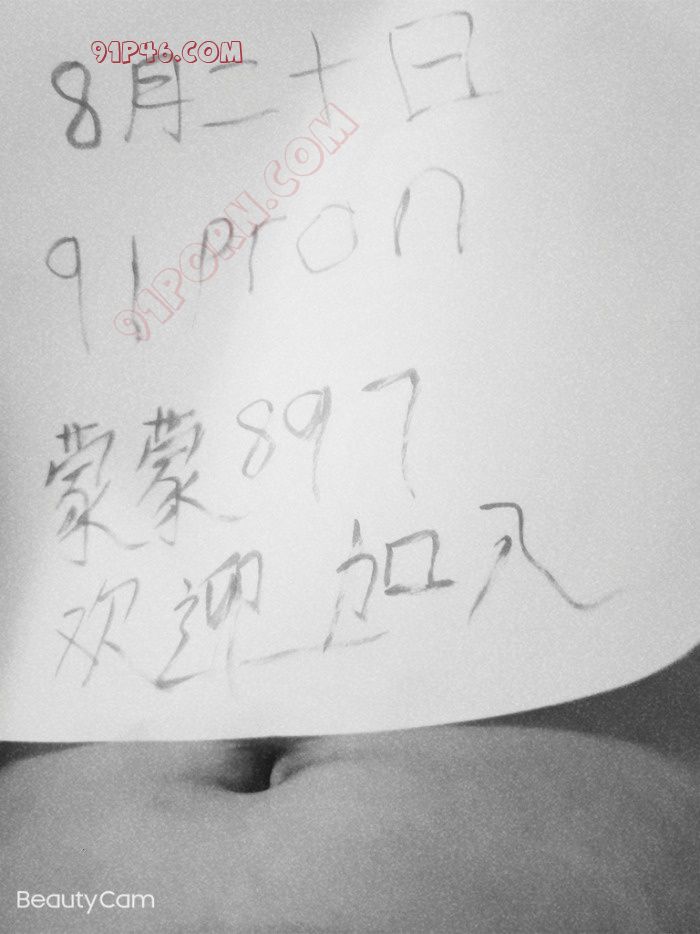 91P46.COM
8月二十日
91pron
91PORN.COM
蒙蒙897
欢迎加入
BeautyCam